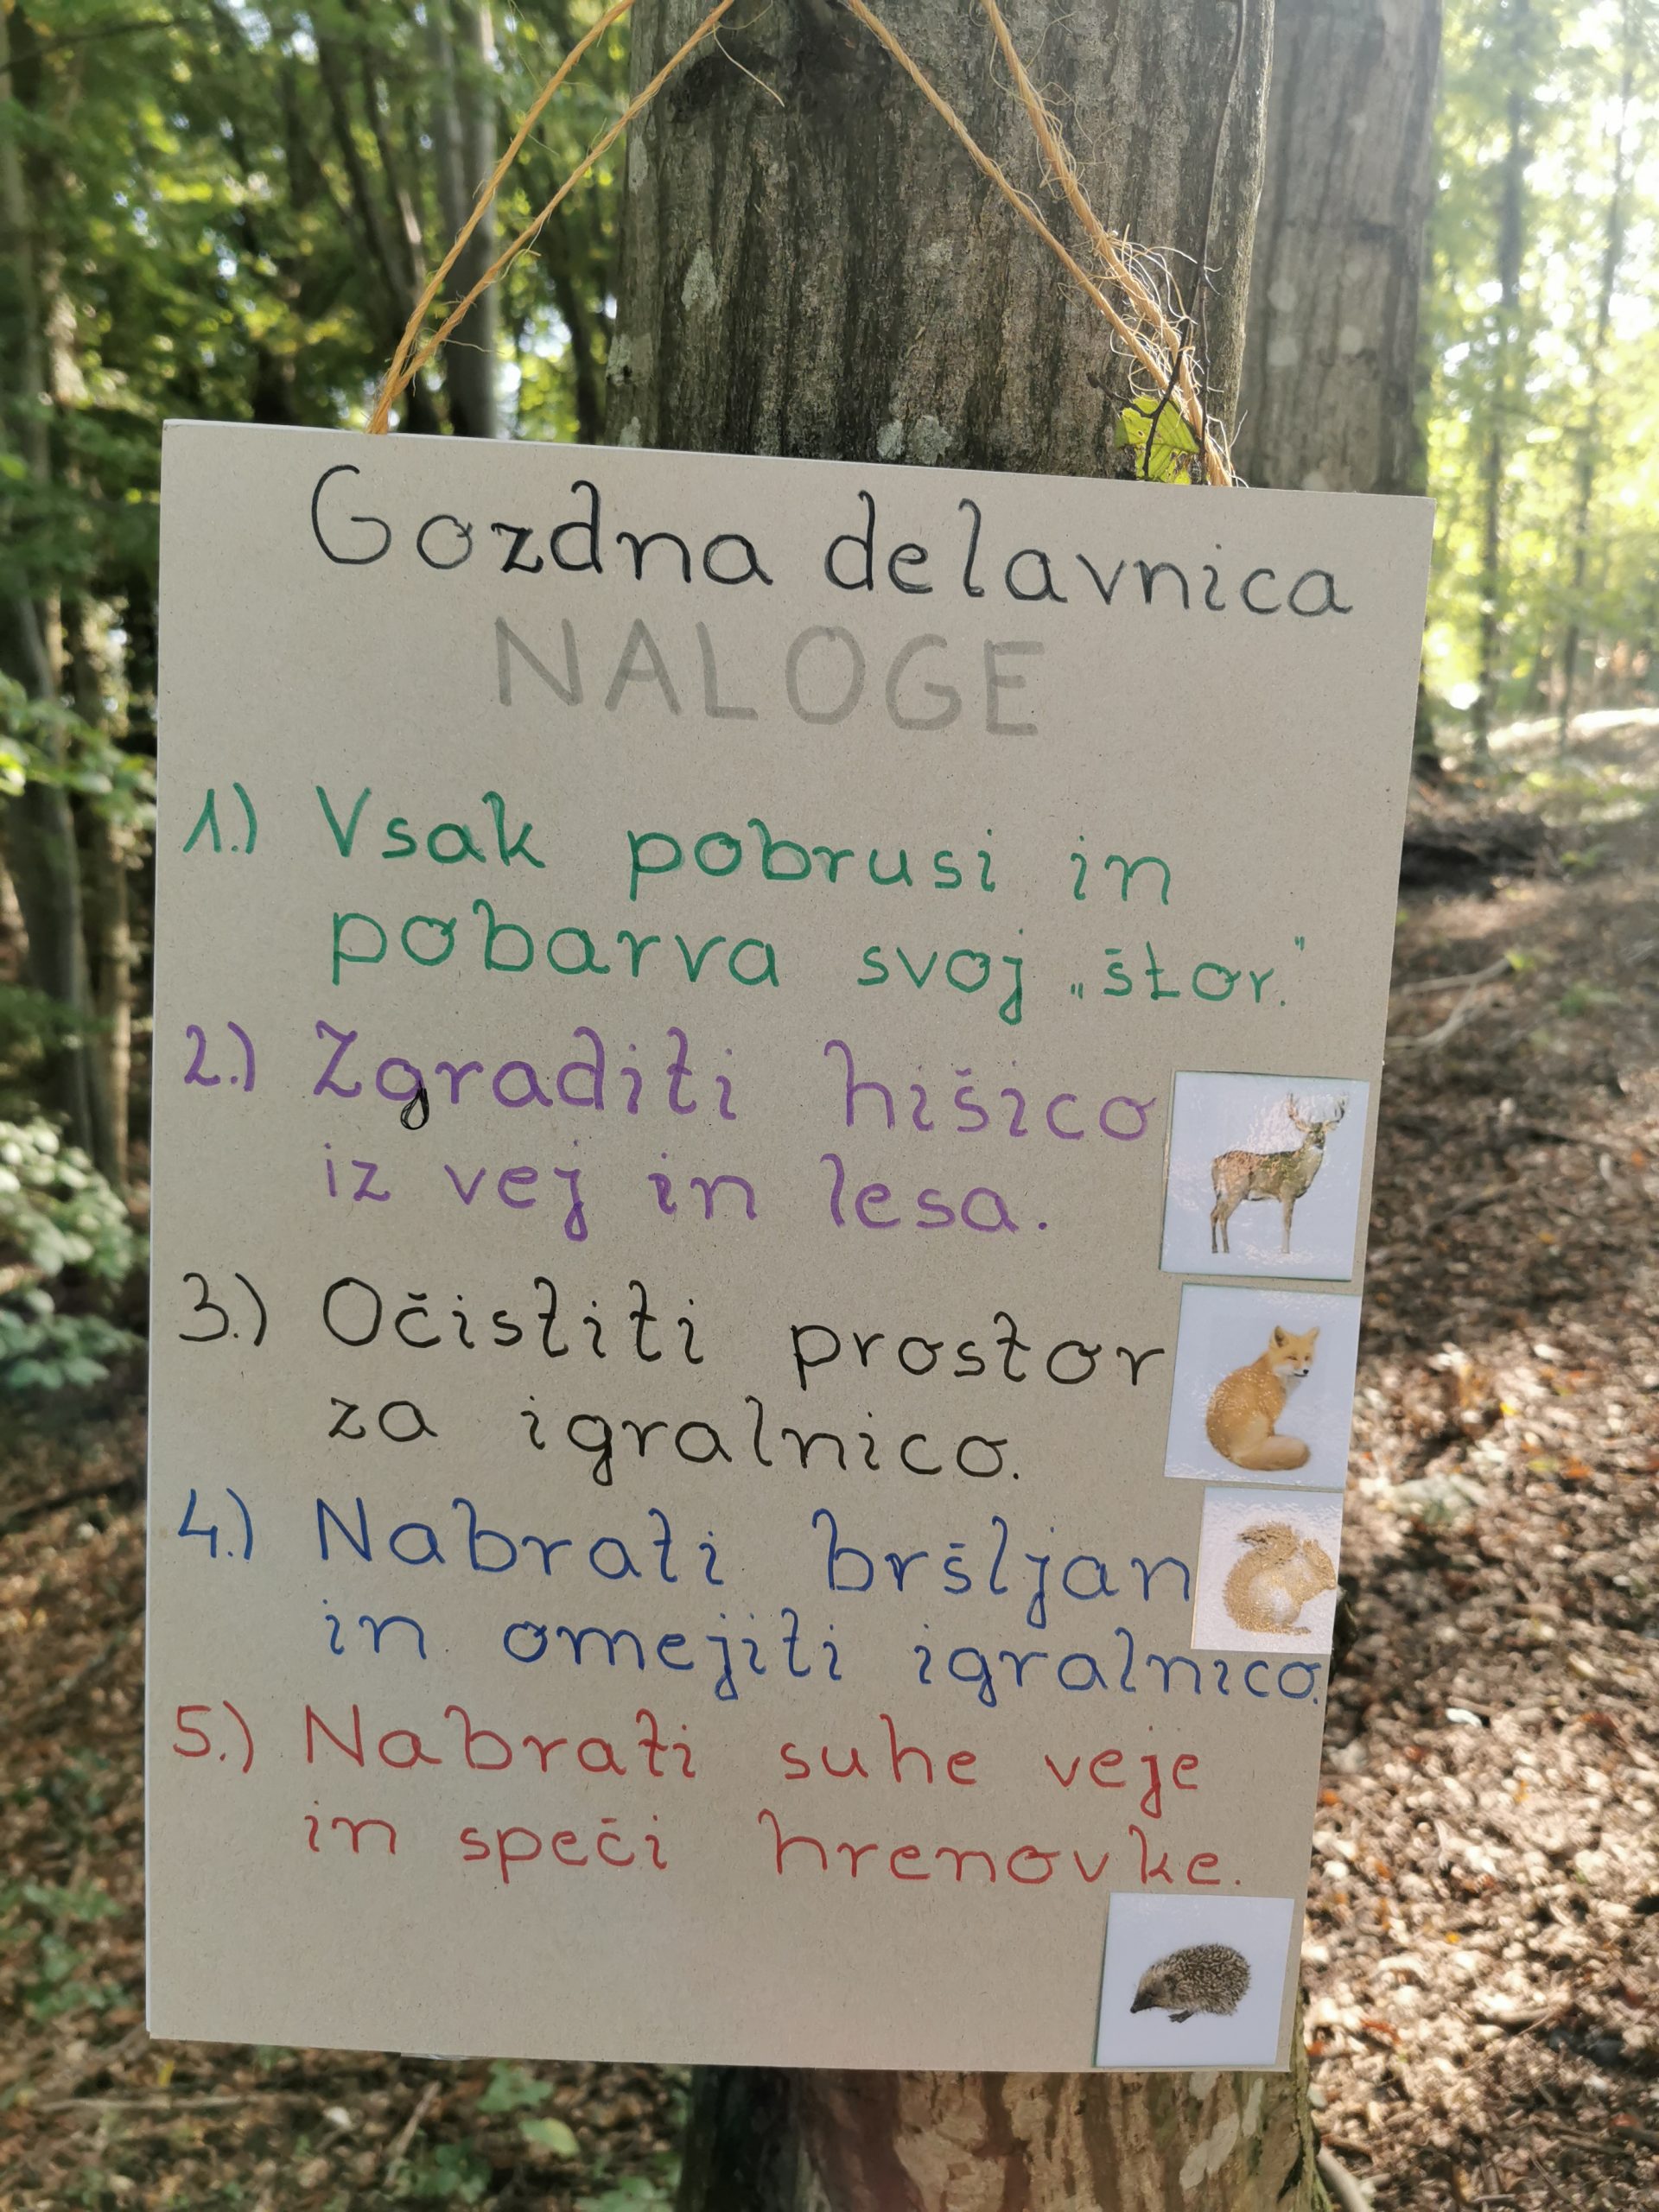 Gozdna delavnica
NALOGE
1.) Vsak pobrusi in
pobarva svoj „štor.”
2.) Zgraditi hišico
iz vej in lesa.
3.) Očistiti prostor
za igralnico.
4.) Nabrati bršljan
in omejiti igralnico.
5.) Nabrati suhe veje
in speči hrenovke.